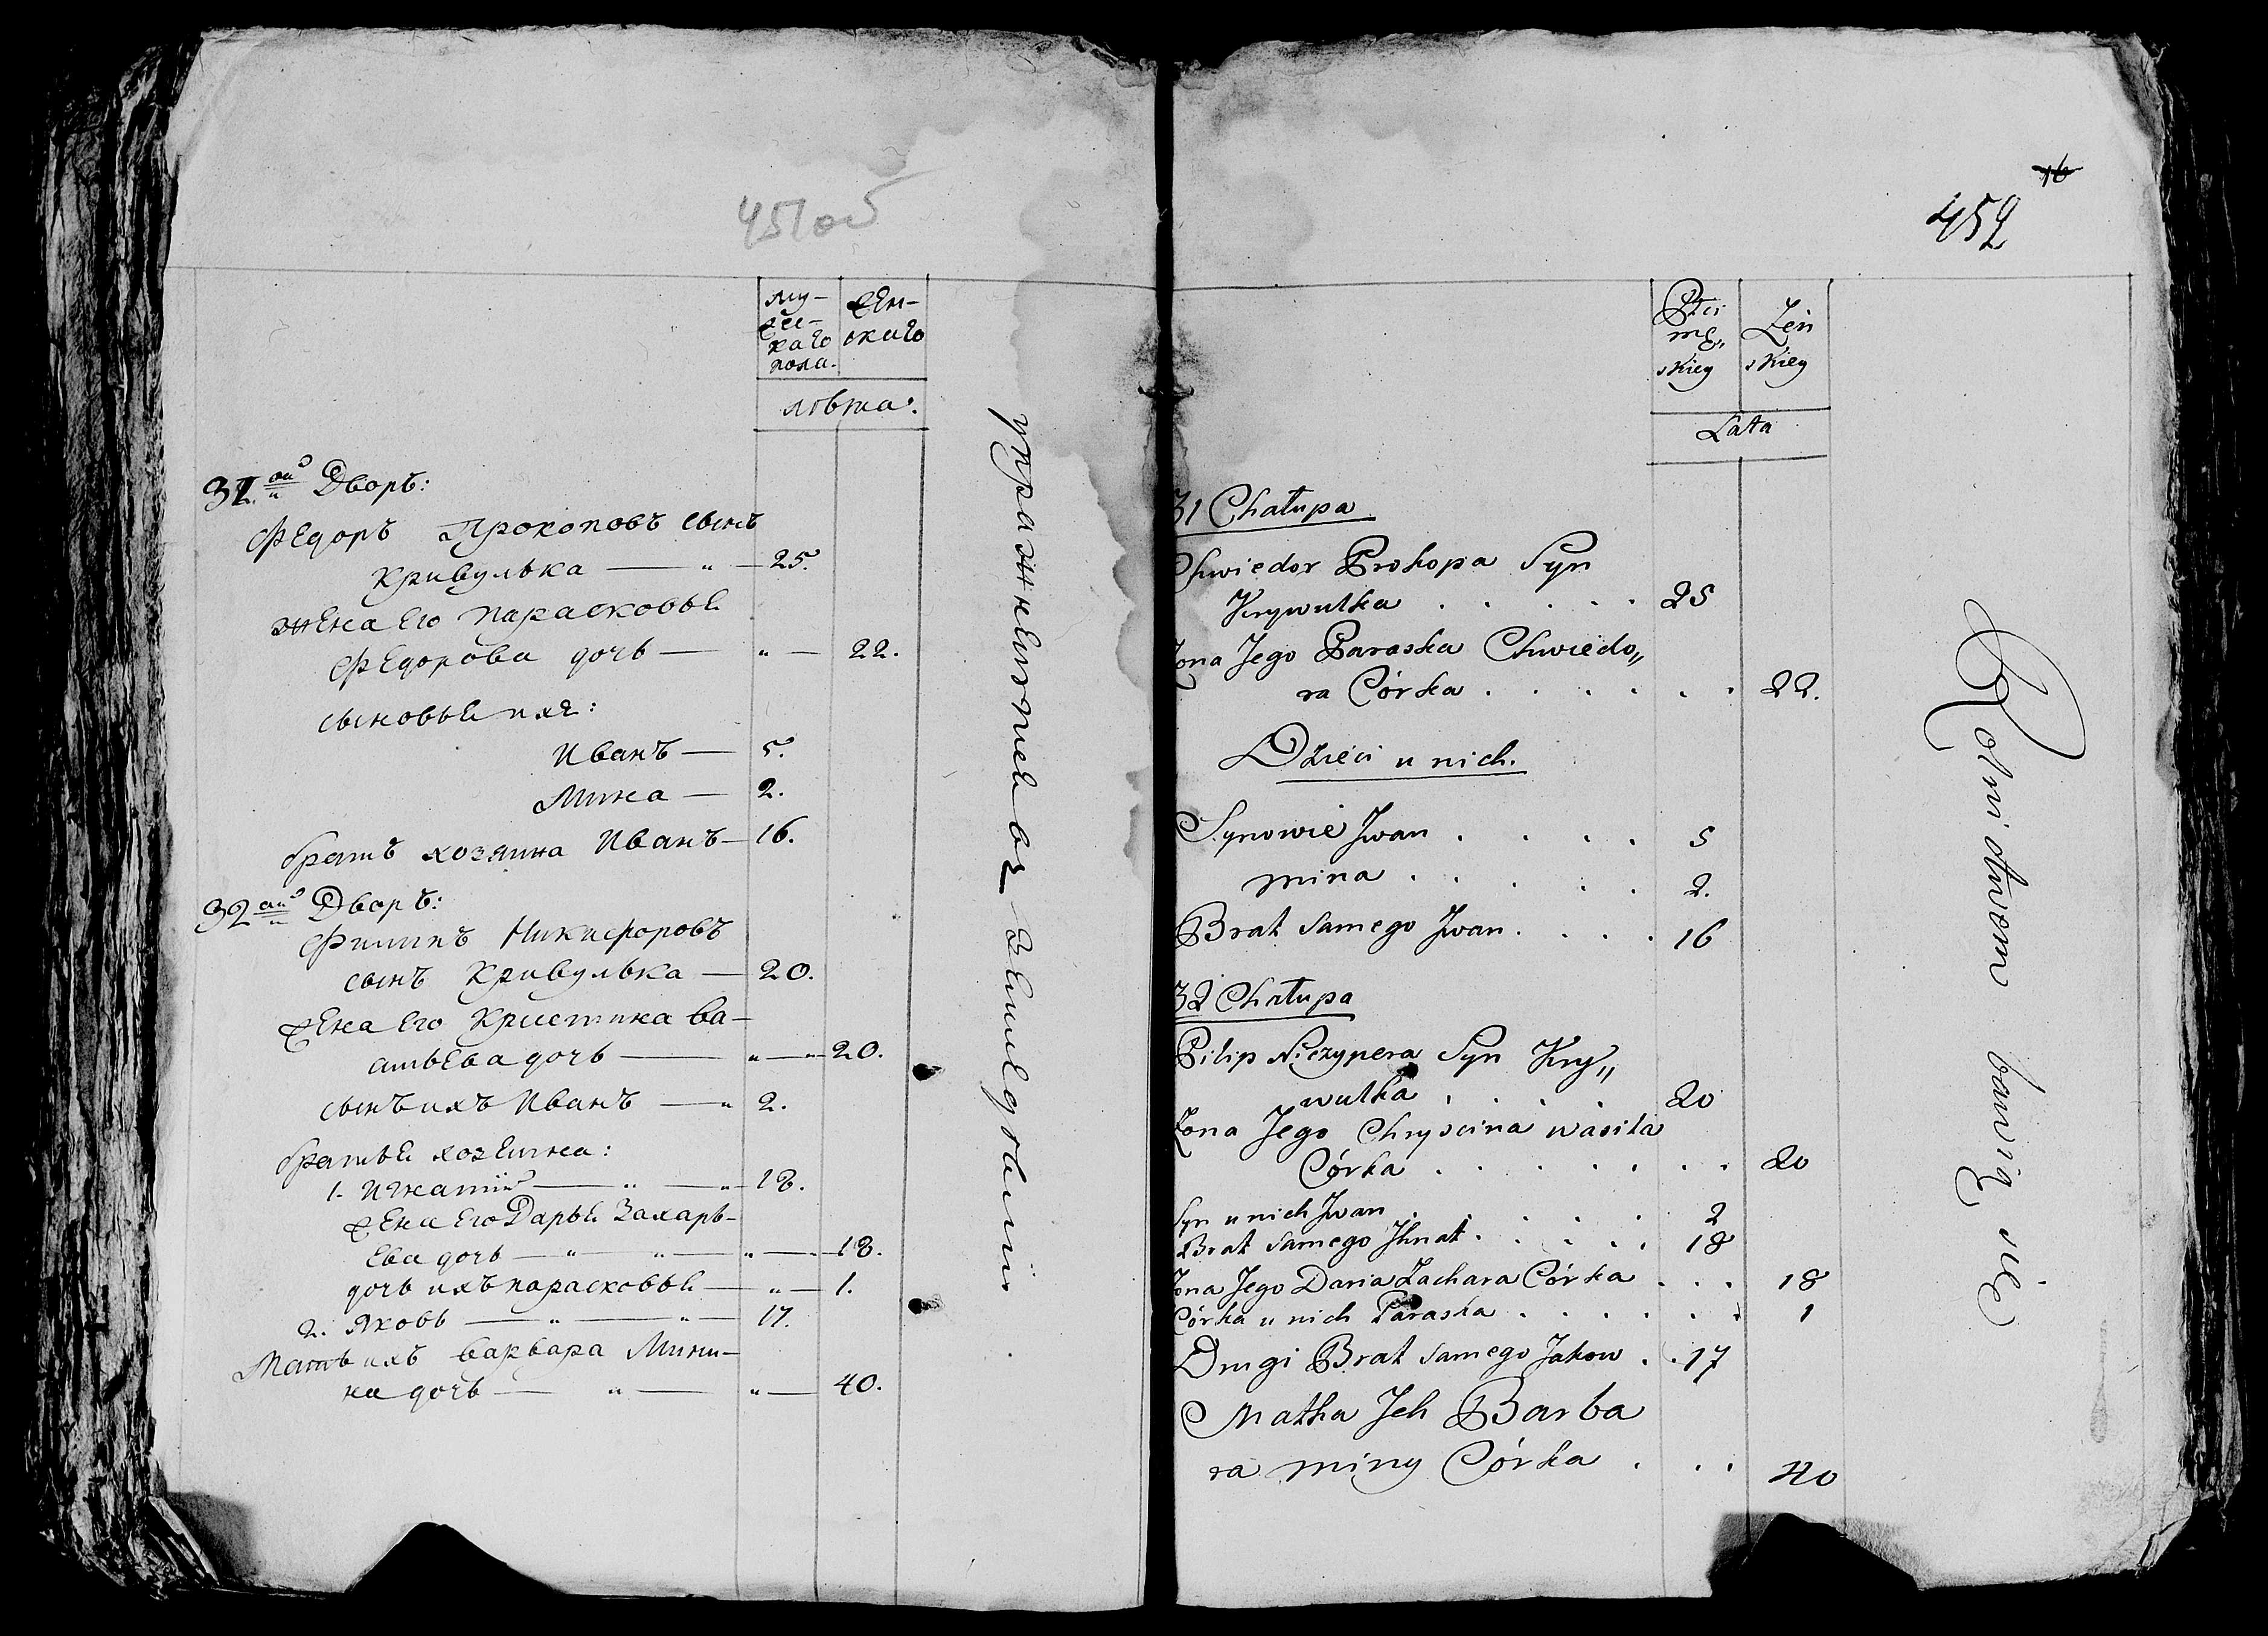 451об
му-
жес-
каго
пола.
жен-
скаго
лѣта.
31.ой Дворъ:
Федоръ Прокоповъ сынъ
Кривулька — „ — 25.
жена Его парасковья
Федорова дочь — „ — 22.
сыновья ихъ:
Иванъ — 5.
Мина — 2.
братъ хозяина Иванъ — 16.
32ой Дворъ:
Филипъ Никифоровъ
сынъ Кривулька — 20.
жена Его Христина ва-
сильева дочь — „ — „ 20.
сынъ ихъ Иванъ — „ 2.
братья хозяина:
1. Игнатій — „ — „ — 18.
жена Его Дарья Захарь-
Ева дочь — „ „ — „ — 18.
дочь ихъ парасковья — „ — 1.
2. Яковъ — „ — „ — 17.
Мать ихъ варвара Мини-
на дочь — „ — „ — 40.
упражняются въ земледѣліи.
16
452
Płci
mę„
skiey
Żeń
skiey
Lata
31 Chałupa
Chwiedor Prokopa Syn
Krywulka . . . . . 25
Żona Jego Paraska Chwiedo„
ra Córka . . . . . . 22.
Dzieci u nich.
Synowie Jwan . . . . 5
mina . . . . . 2.
Brat Samego Jwan . . . . 16
32 Chałupa
Pilip Niczypera Syn Kry„
wulka . . . . 20
Żona Jego Chryscina wasila
Córka . . . . . . . . 20
Syn u nich Jwan . . . . . 2
Brat Samego Jhnat . . . . . 18
Żona Jego Daria Zachara Córka . . . 18
Córka u nich Paraska . . . . . . 1
Drugi Brat Samego Jakow . . 17
Matka Jch Barba
ra miny Córka . . . 40
Rolnictwem bawią się